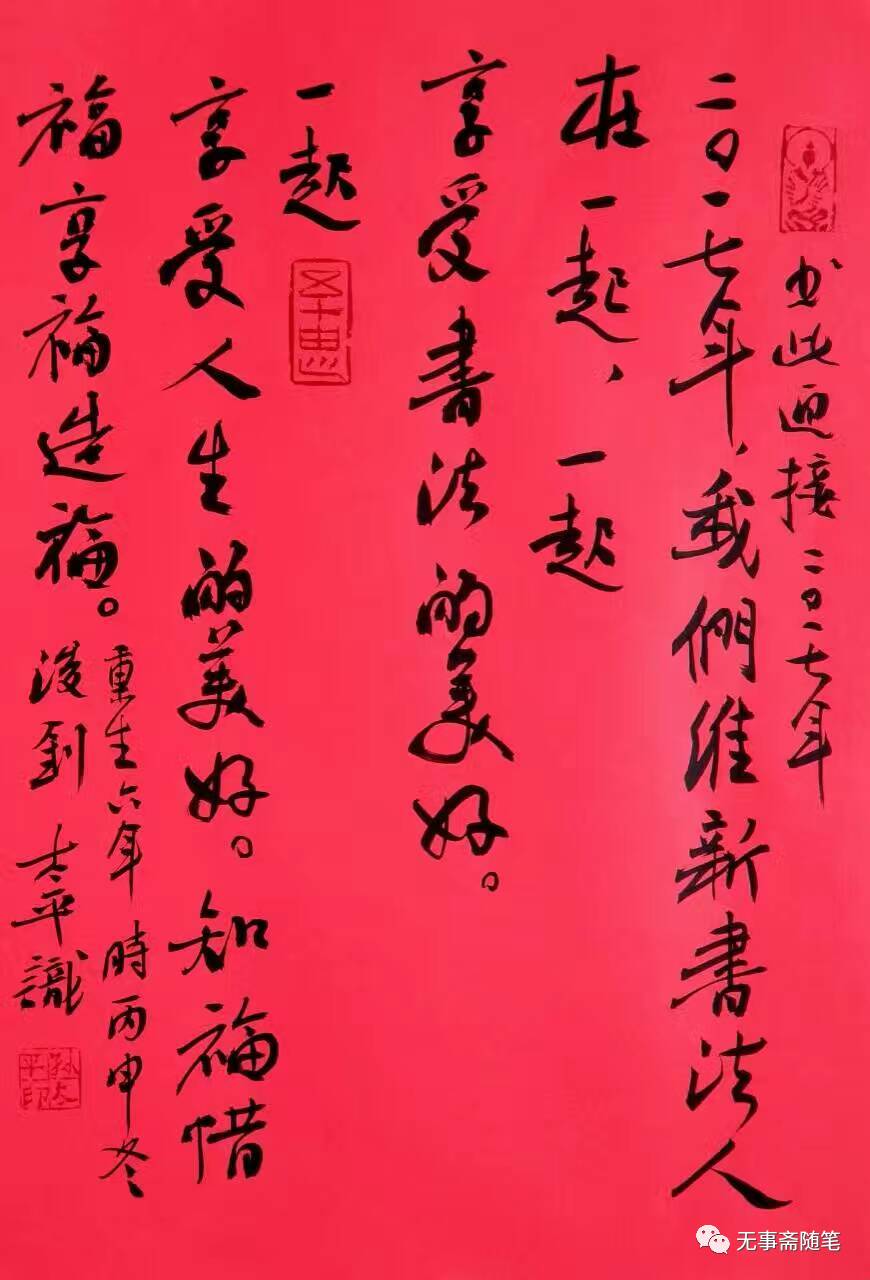 书此迎接二〇一七年
二〇一七年，我們維新書法人
在一起，一起
享受書法的美好。
一起
享受人生的美好。知福惜
福享福造福。
重生六年 時丙申冬
太平識
孙太平印
无事斋随笔